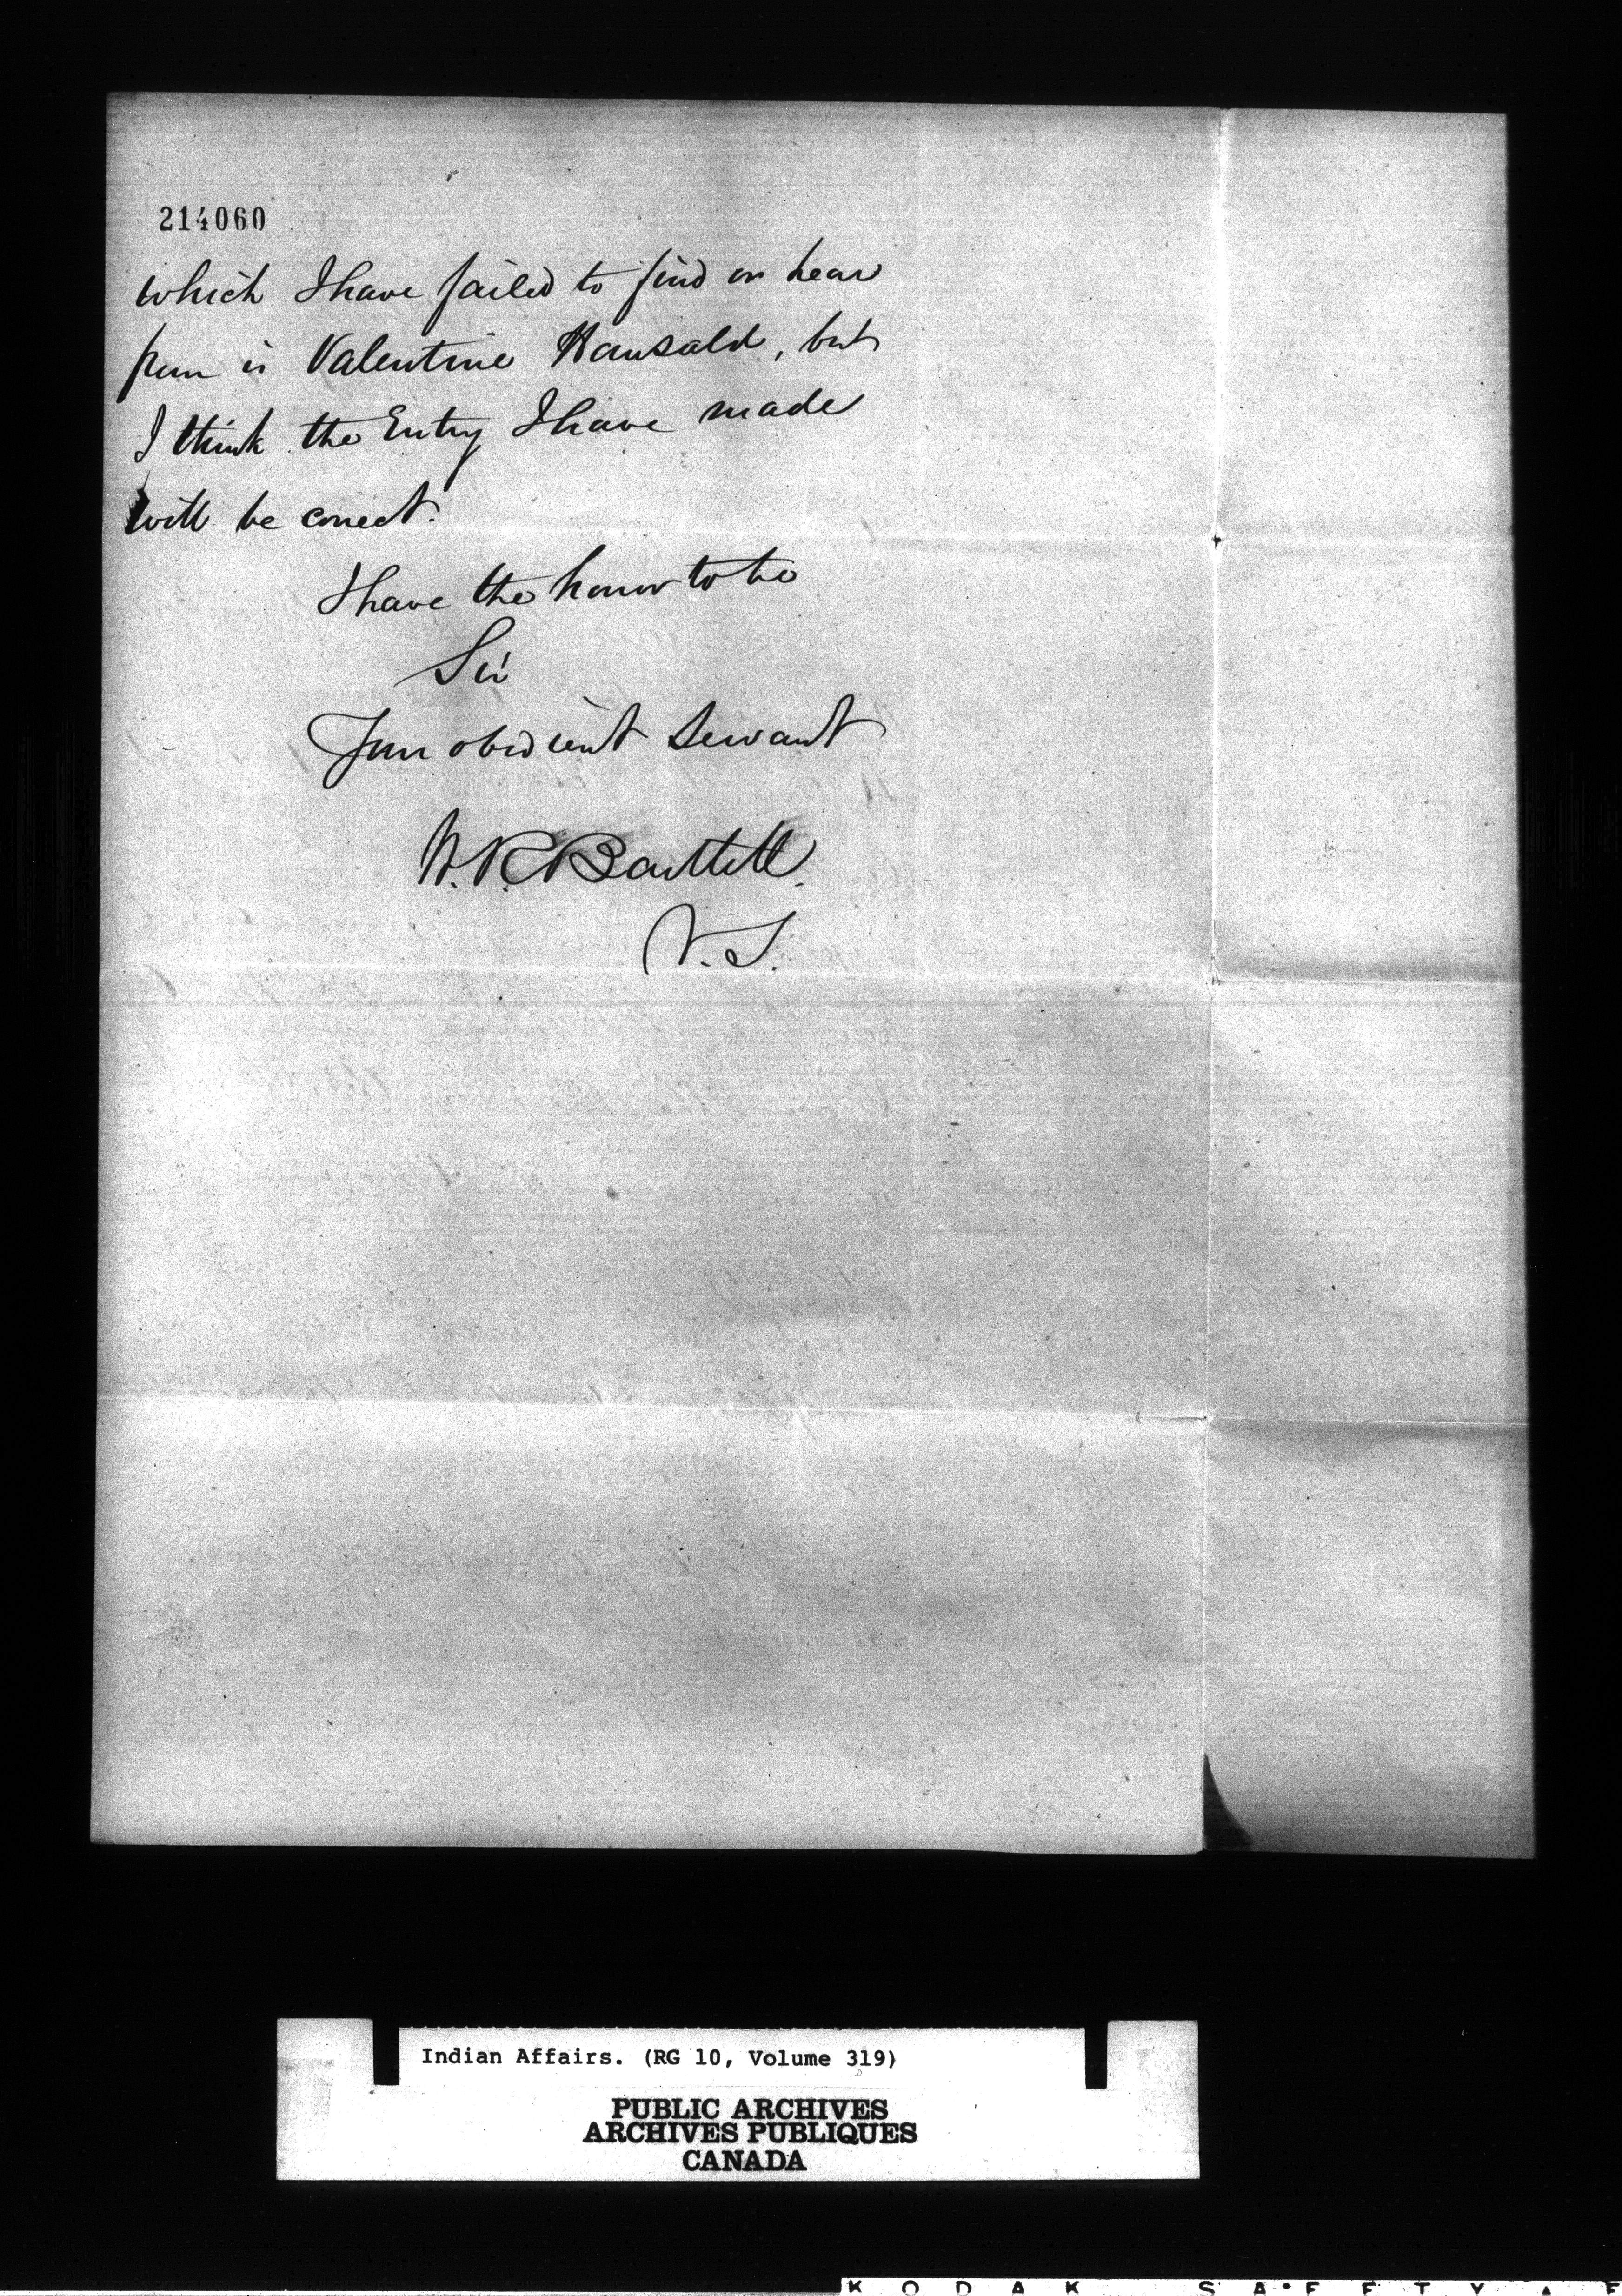 214060
which I have failed to find or hear
from is Valentine Hansald, but
I think the Entry I have made
will be correct.
I have the honor to be
Sir
Your obedient Servant
W.R. Bartlett.
V.S.
Indian Affairs. (RG 10, Volume 319)
PUBLIC ARCHIVES
ARCHIVES PUBLIQUES
CANADA
KODAK SAFETY